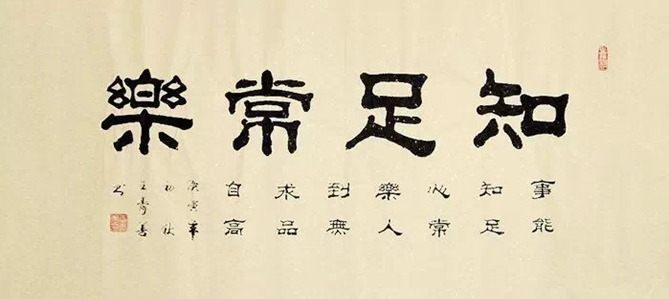 知足常樂
事能
知足
心常
樂人
到無
求品
自高
庚寅年
初秋
王壽善
书